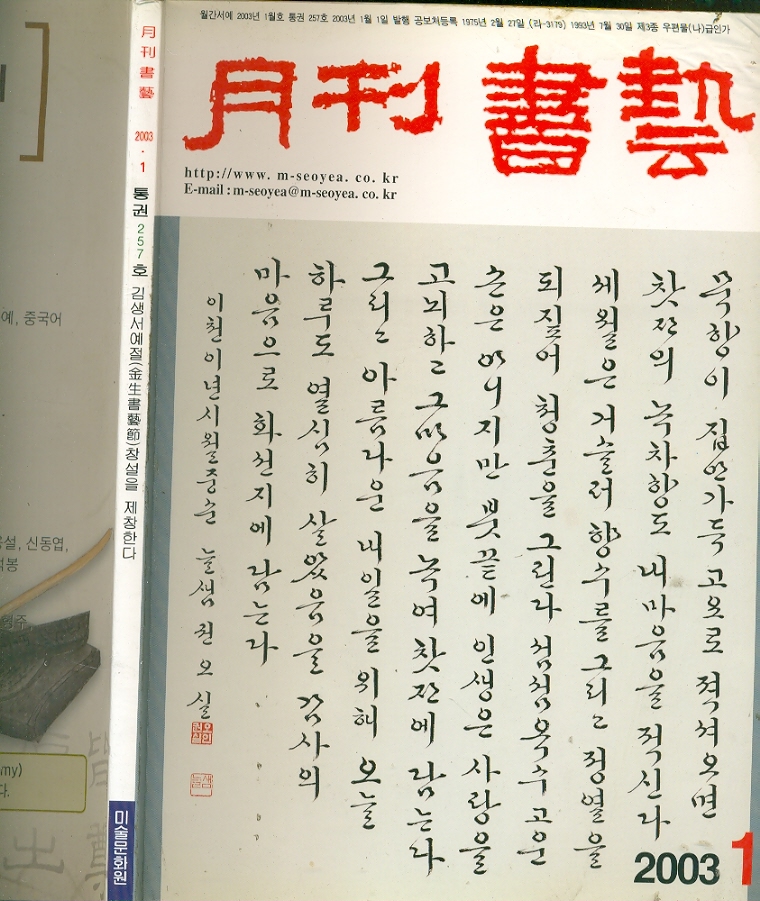 월간서예 2003년 1월호 통권 257호 2003년 1월 1일 발행 공보처등록 1975년 2월 27일 (라-3179) 1993년 7월 30일 제3종 우편물(나)급인가
月刊書藝
http://www. m-seoyea. co. kr
E-mail : m-seoyea@m-seoyea. co. kr
묵향이 집안가득 고요로 젹셔오면
찻잔의 녹차향도 내마음을 적신다
세월은 거슬러 향수를 그리고 정열을
되짚어 청춘을 그린다 섬섬옥수 고운
손은 아니지만 붓끝에 인생은 사랑을
고뇌하고 그마음을 녹여 찻잔에 담는다
그리고 아름다운 내일을 위해 오늘
하루도 열심히 살았음을 감사의
마음으로 화선지에 담는다
이천이년시월중순 늘샘 전 오 실
2003 1
月刊書藝 2003 · 1 통권 257호 김생서예절(金生書藝節)창설을 제창한다
미술문화원
예, 중국어
설, 신동엽,
봉
my)
다.